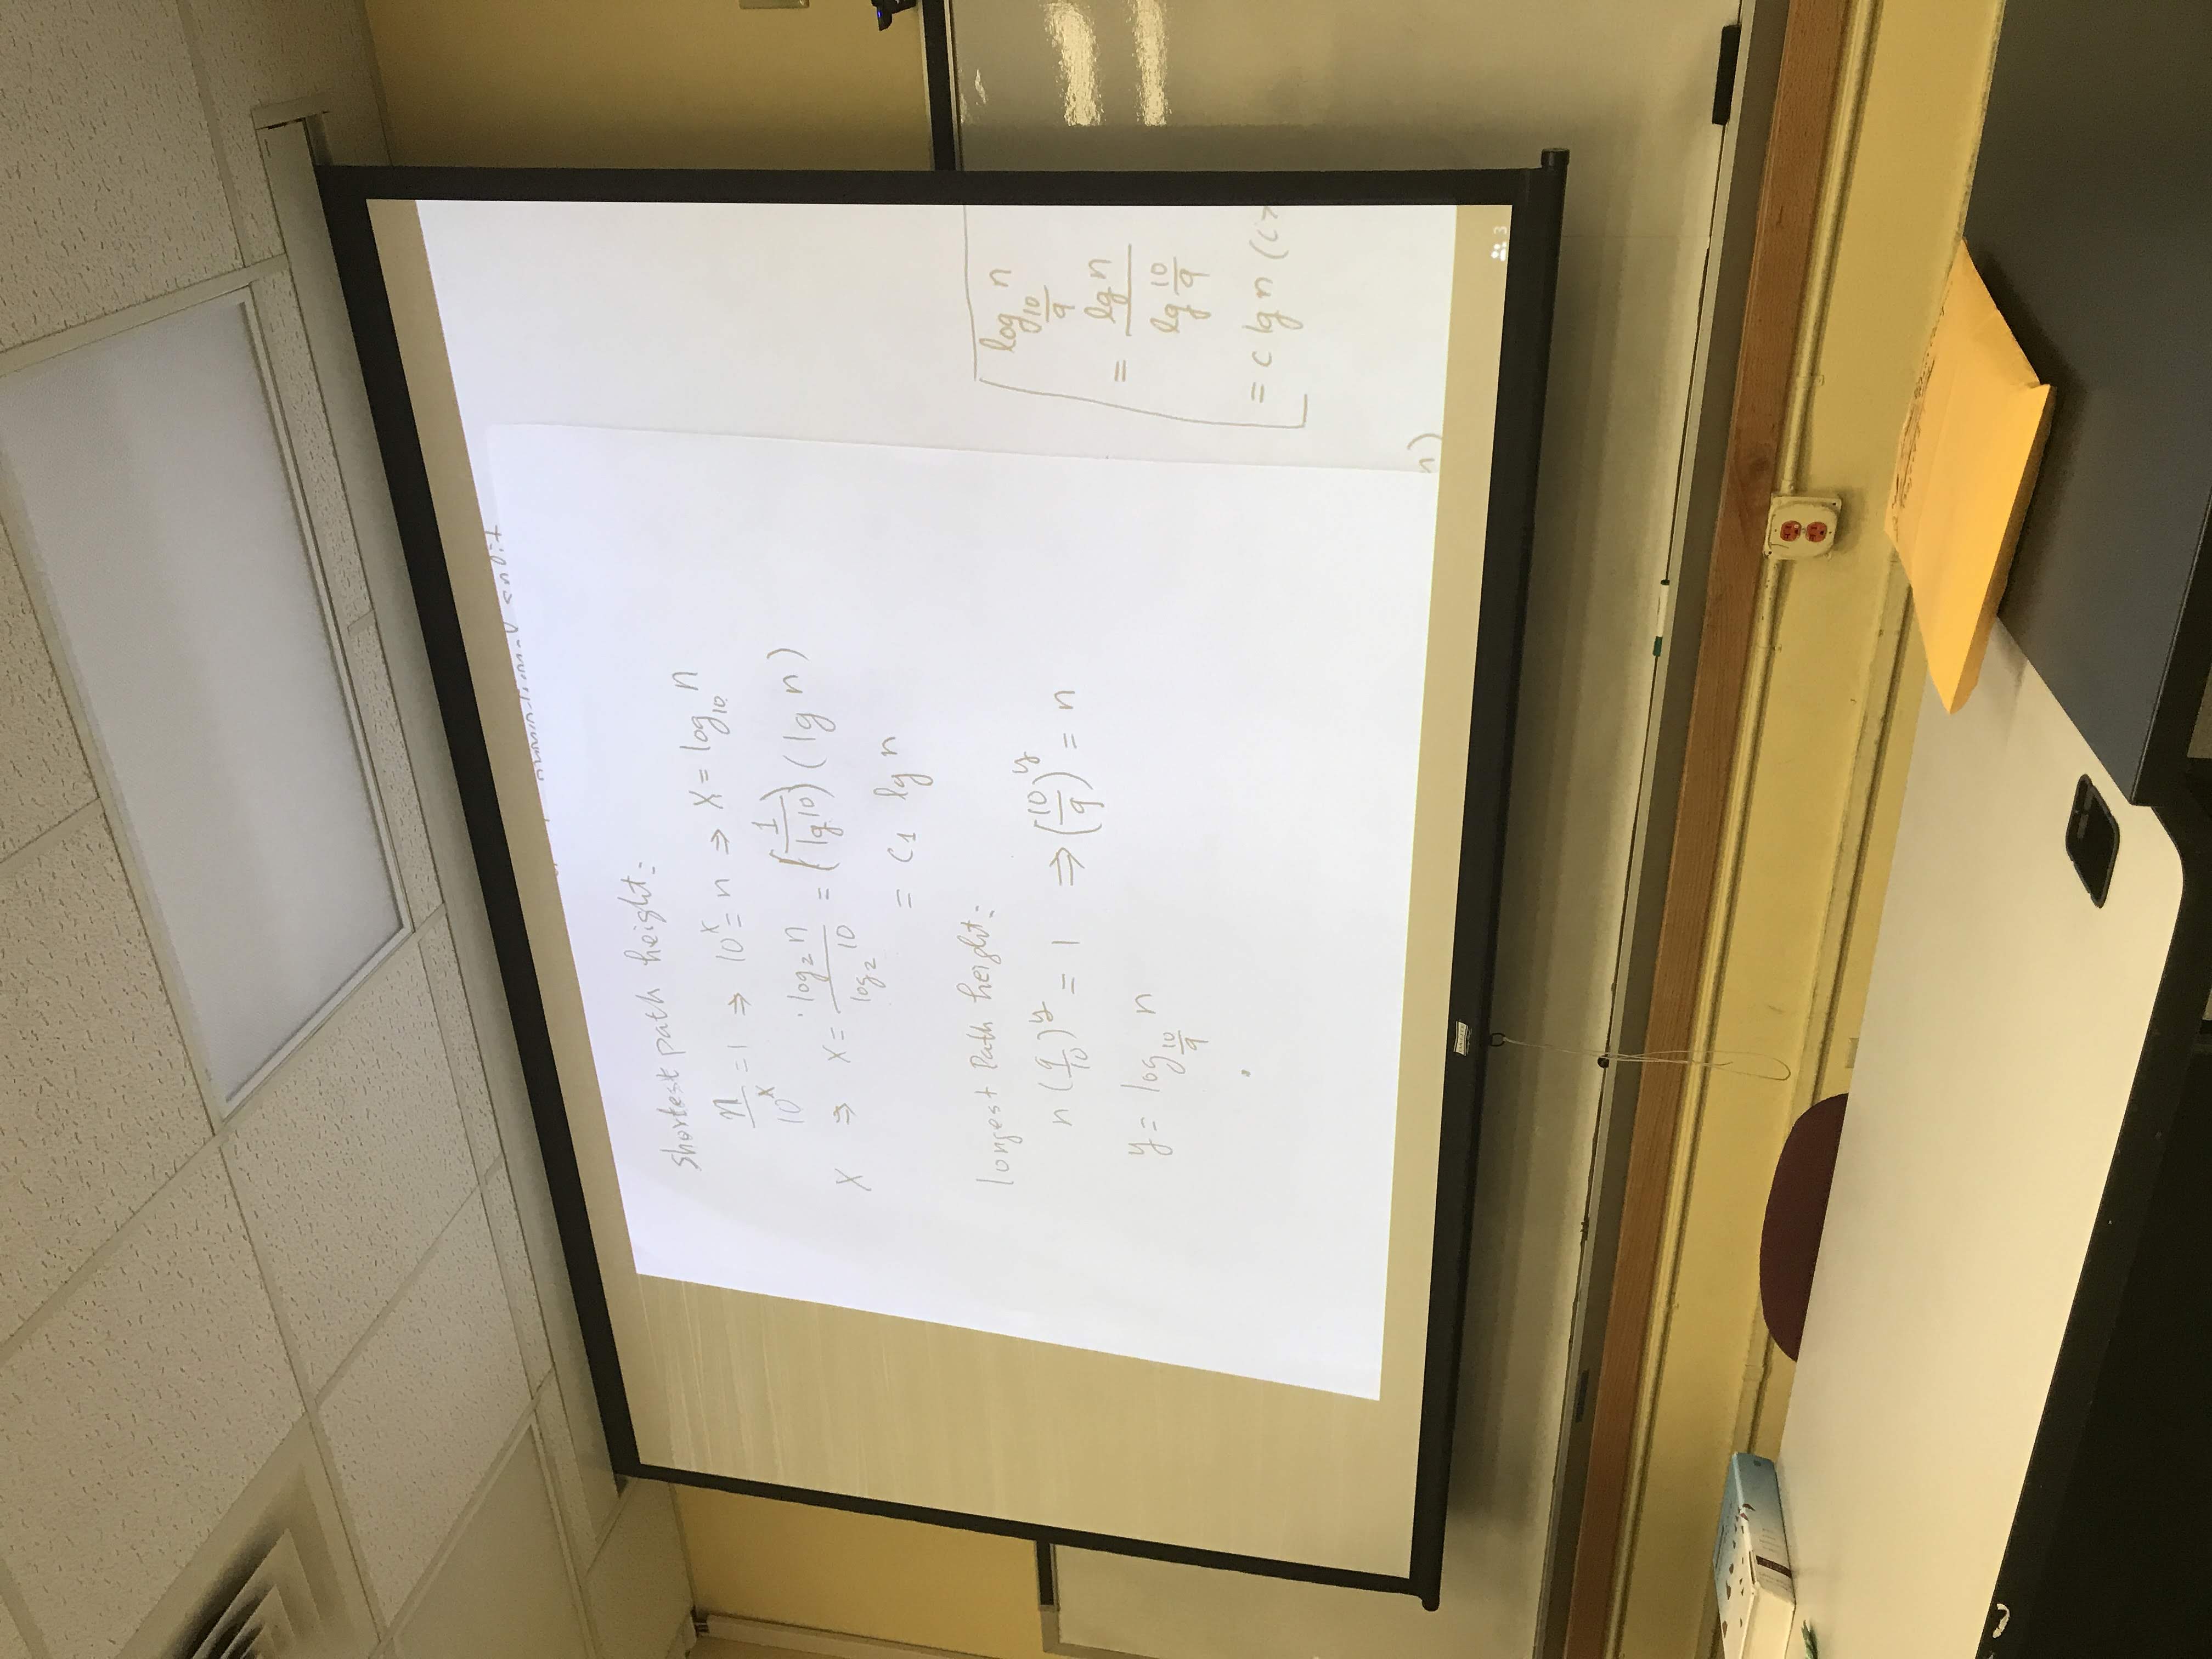 Shortest path height:
n/10^x = 1 ⇒ 10^x = n ⇒ X = log_10 n
X ⇒ x = log_2 n / log_2 10 = (1/lg 10) (lg n)
= c_1 lg n
longest Path height:
n (9/10)^y = 1 ⇒ (10/9)^y = n
y = log_10/9 n
log_10/9 n
= lg n / lg 10/9
= c lg n (c>
n)
3